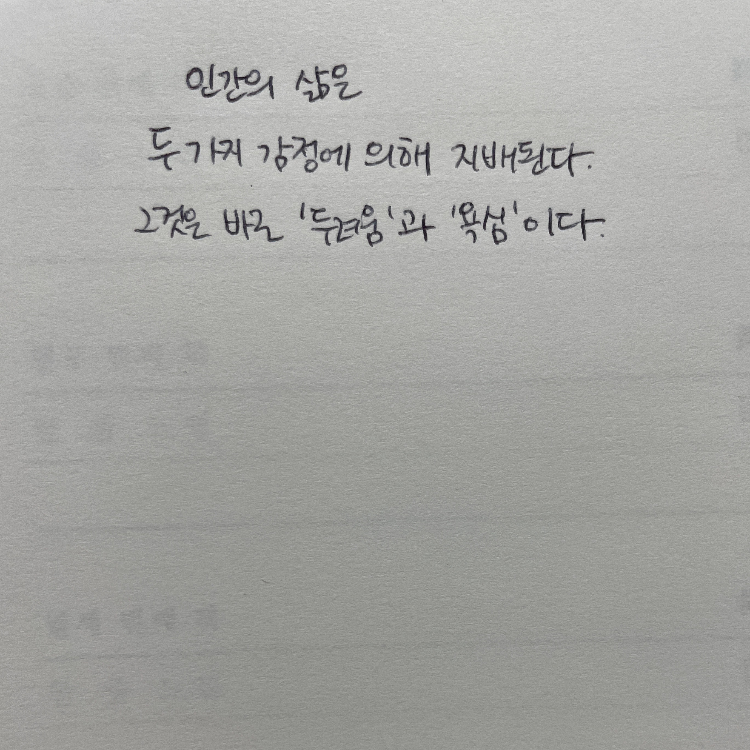 인간의 삶은
두가지 감정에 의해 지배된다.
그것은 바로 '두려움'과 '욕심'이다.